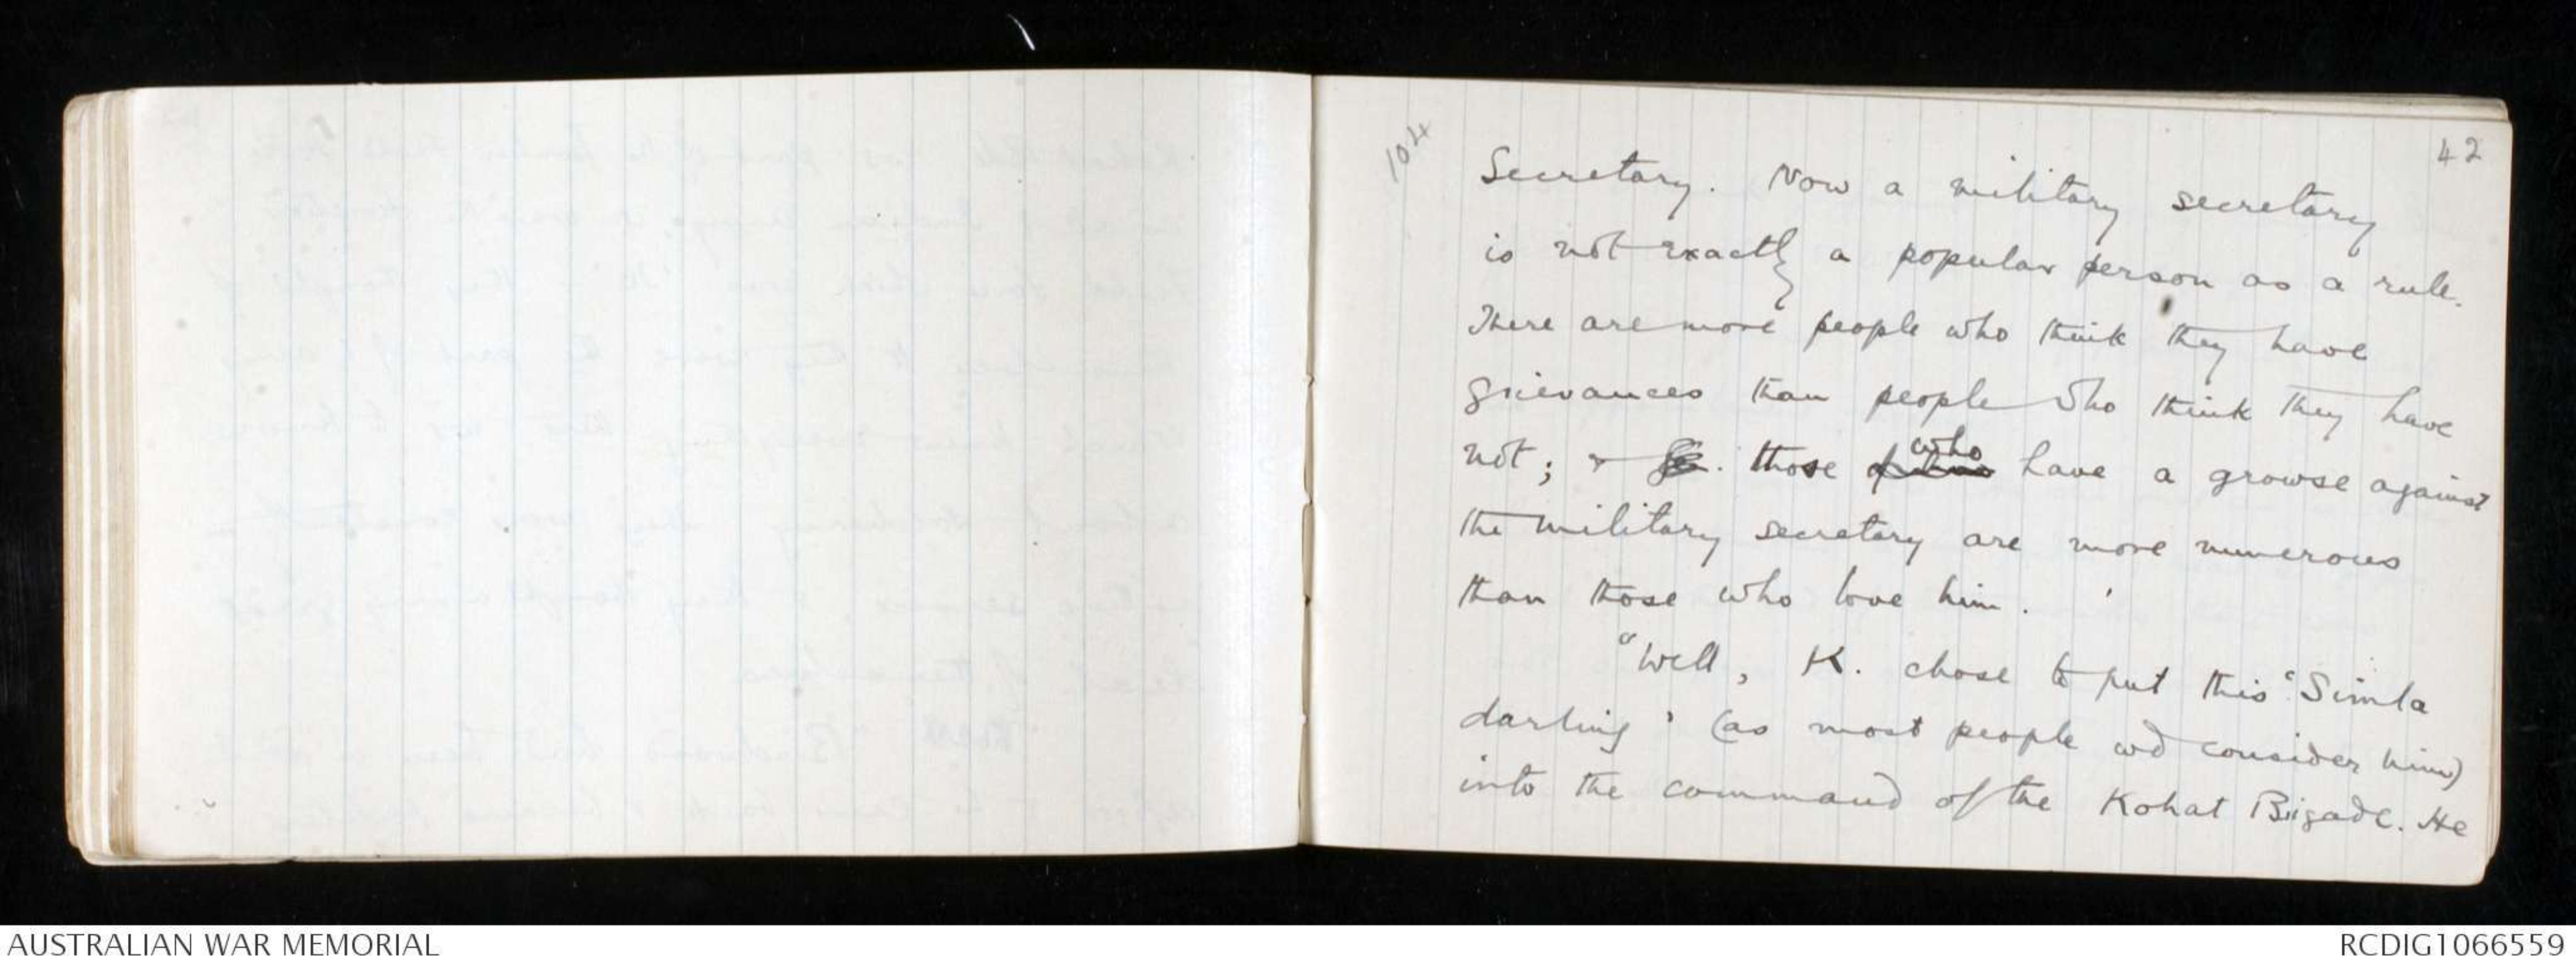 104
42
Secretary. Now a military secretary
is not exactly a popular person as a rule.
There are more people who think they have
grievances than people who think they have
not; & those who have a growse against
the military secretary are more numerous
than those who love him.
"Well, K. chose to put this 'Simla
darling' (as most people wd consider him)
into the command of the Kohat Brigade. He
AUSTRALIAN WAR MEMORIAL
RCDIG1066559